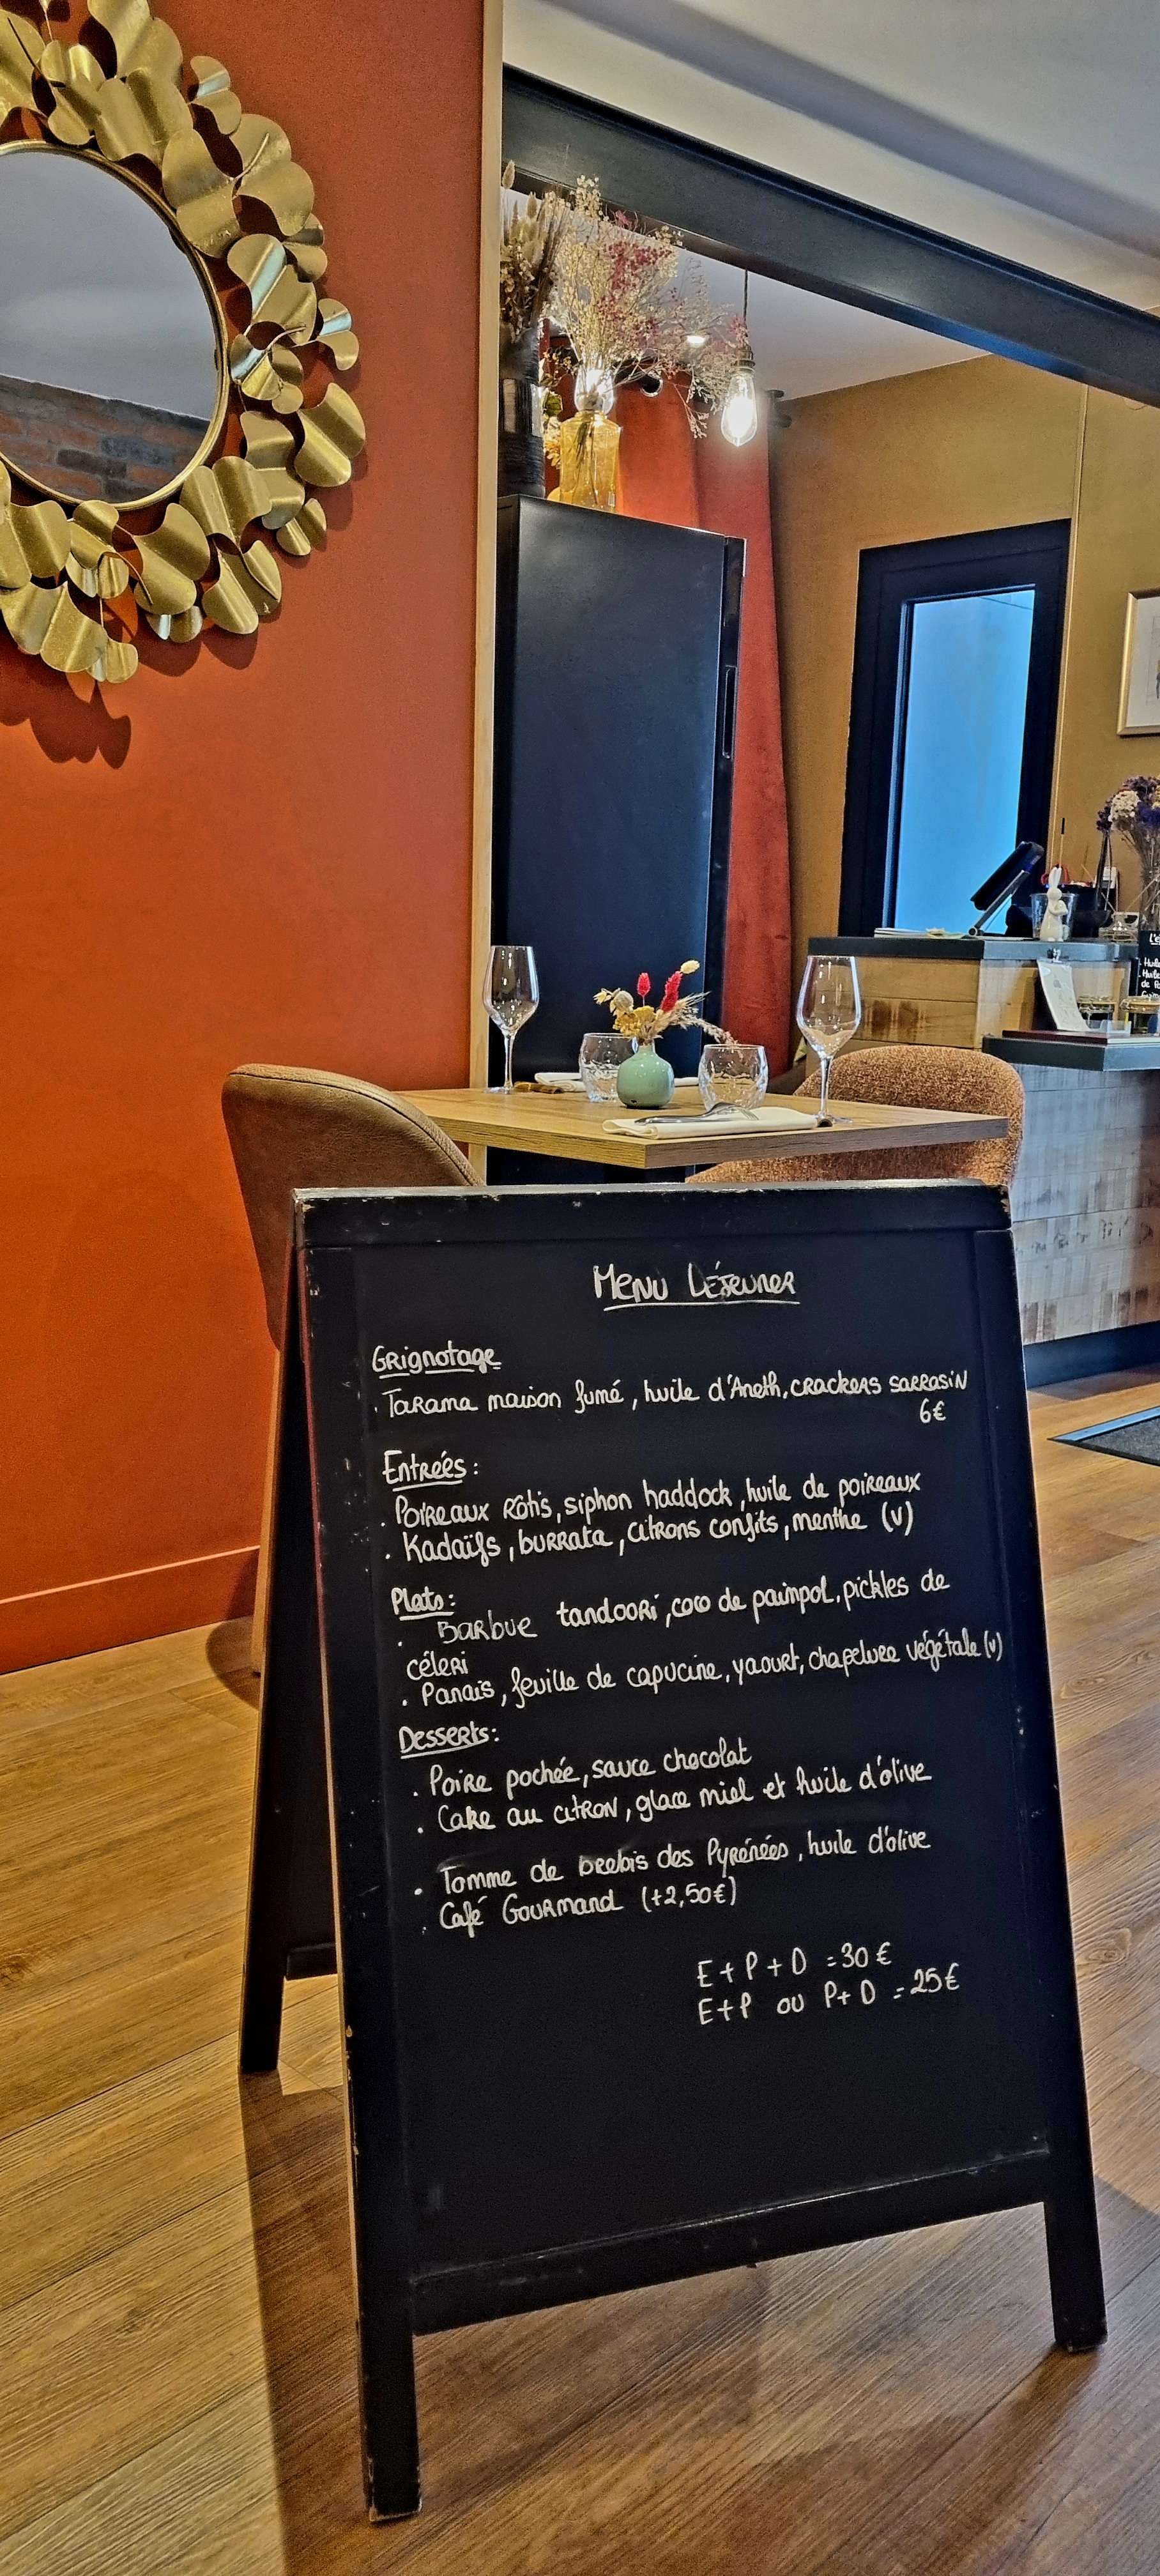 Menu Déjeuner
Grignotage
. Tarama maison fumé, huile d'Aneth, crackers sarrasin
6€
Entrées :
. Poireaux rôtis, siphon haddock, huile de poireaux
. Kadaïfs, burrata, citrons confits, menthe (v)
Plats :
. Barbue tandoori, coco de paimpol, pickles de
céleri
. Panais, feuille de capucine, yaourt, chapelure végétale (v)
Desserts :
. Poire pochée, sauce chocolat
. Cake au citron, glace miel et huile d'olive
. Tomme de brebis des Pyrénées, huile d'olive
. Café Gourmand (+2,50€)
E + P + D = 30 €
E+P ou P+D = 25€